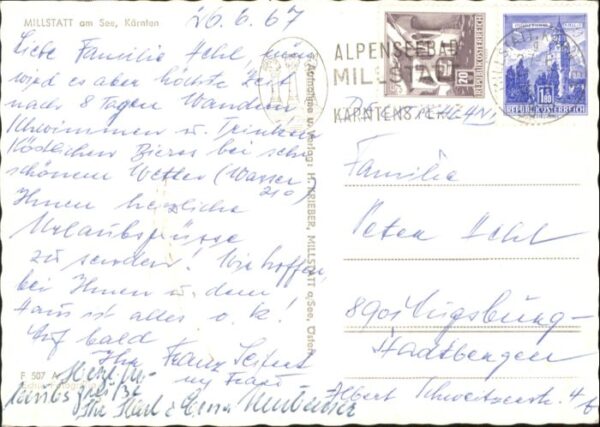 MILLSTATT am See, Kärnten
26.6.67
Liebe Familie Hehl, nun
wird es aber höchste Zeit
nach 8 Tagen Wandern
Schwimmen u. Trinken
köstlichen Bieres bei sehr
schönem Wetter (Wasser
21°)
Ihnen herzliche
Urlaubsgrüsse
zu senden! Wir hoffen,
bei Ihnen u. dem
Haus ist alles o.k.!
Auf bald
Ihr Franz Seifert
u. Frau
F 507
Herzliche
Urlaubsgrüße
Ihre Karl u. Erna Neubauer
Aufnahme u. Verlag: H. KRIEBER, MILLSTATT a. See, Österr.
ALPENSEEBAD
MILLSTATT
KÄRNTENS PERLE
REPUBLIK ÖSTERREICH
20
REPUBLIK ÖSTERREICH
1.80
DEUTSCHLAND
Familie
Peter Hehl
8901 Augsburg-
Stadtbergen
Albert Schweitzerstr. 4